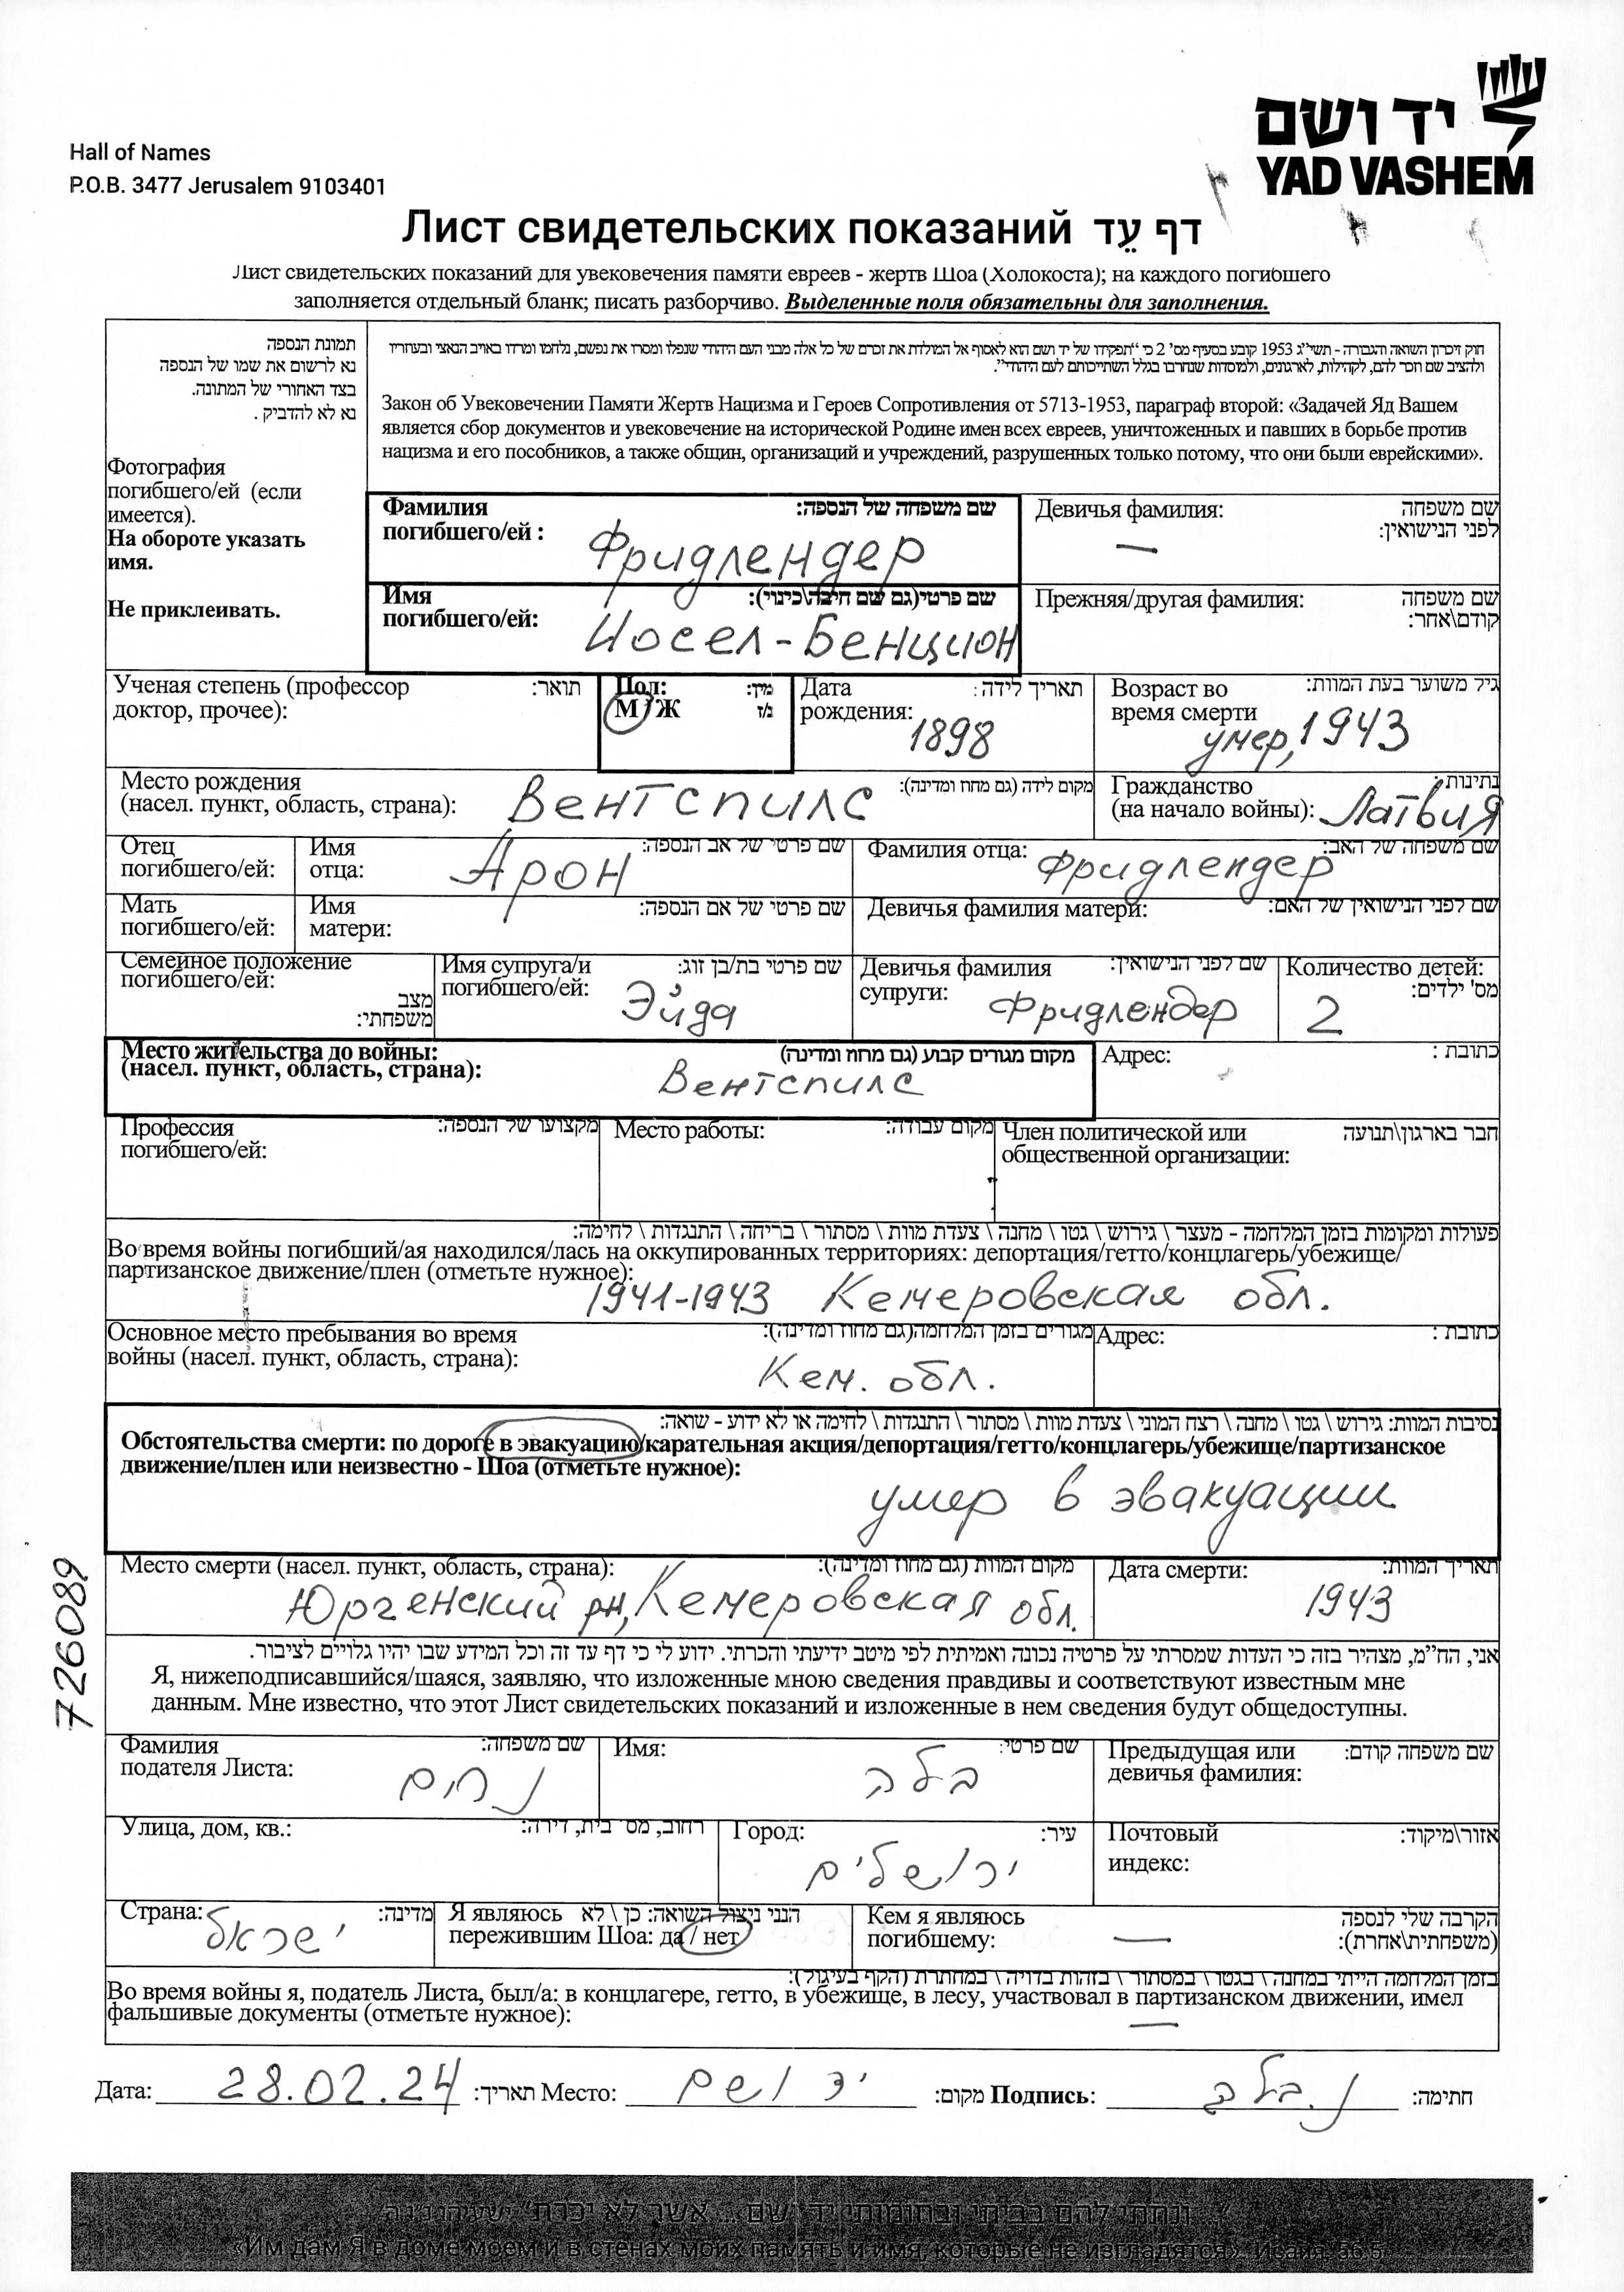 יד ושם
YAD VASHEM
Hall of Names
P.O.B. 3477 Jerusalem 9103401
Лист свидетельских показаний דף עֵד
Лист свидетельских показаний для увековечения памяти евреев - жертв Шоа (Холокоста); на каждого погибшего
заполняется отдельный бланк; писать разборчиво. Выделенные поля обязательны для заполнения.
תמונת הנספה
נא לרשום את שמו של הנספה
בצד האחורי של התמונה.
נא לא להדביק .
Фотография
погибшего/ей (если
имеется).
На обороте указать
имя.
Не приклеивать.
חוק זיכרון השואה והגבורה - תשי"ג 1953 קובע בסעיף מס' 2 כי "תפקידו של יד ושם הוא לאסוף אל המולדת את זכרם של כל אלה מבני העם היהודי שנפלו ומסרו את נפשם, נלחמו ומרדו באויב הנאצי ובעוזריו
ולהציב שם וזכר להם, לקהילות, לארגונים, ולמוסדות שנחרבו בגלל השתייכותם לעם היהודי".
Закон об Увековечении Памяти Жертв Нацизма и Героев Сопротивления от 5713-1953, параграф второй: «Задачей Яд Вашем
является сбор документов и увековечение на исторической Родине имен всех евреев, уничтоженных и павших в борьбе против
нацизма и его пособников, а также общин, организаций и учреждений, разрушенных только потому, что они были еврейскими».
Фамилия שם משפחה של הנספה:
погибшего/ей : Фридлендер
Девичья фамилия: שם משפחה
לפני הנישואין:
—
Имя שם פרטי(גם שם חיבה\כינוי):
погибшего/ей: Иосел-Бенцион
Прежняя/другая фамилия: שם משפחה
קודם\אחר:
Ученая степень (профессор תואר:
доктор, прочее):
Пол: מין:
М / Ж ז/נ
Дата תאריך לידה:
рождения: 1898
Возраст во גיל משוער בעת המוות:
время смерти умер, 1943
Место рождения מקום לידה (גם מחוז ומדינה):
(насел. пункт, область, страна): Вентспилс
Гражданство נתינות:
(на начало войны): Латвия
Отец
погибшего/ей:
Имя שם פרטי של אב הנספה:
отца: Арон
Фамилия отца: שם משפחה של האב:
Фридлендер
Мать
погибшего/ей:
Имя שם פרטי של אם הנספה:
матери:
Девичья фамилия матери: שם לפני הנישואין של האם:
Семейное положение
погибшего/ей:
מצב
משפחתי:
Имя супруга/и שם פרטי בת/בן זוג:
погибшего/ей: Эйда
Девичья фамилия שם לפני הנישואין:
супруги: Фридлендер
Количество детей:
מס' ילדים:
2
Место жительства до войны: מקום מגורים קבוע (גם מחוז ומדינה)
(насел. пункт, область, страна): Вентспилс
Адрес: כתובת :
Профессия מקצועו של הנספה:
погибшего/ей:
Место работы: מקום עבודה:
Член политической или חבר בארגון\תנועה
общественной организации:
פעולות ומקומות בזמן המלחמה - מעצר \ גירוש \ גטו \ מחנה \ צעדת מוות \ מסתור \ בריחה \ התנגדות \ לחימה:
Во время войны погибший/ая находился/лась на оккупированных территориях: депортация/гетто/концлагерь/убежище/
партизанское движение/плен (отметьте нужное):
1941-1943 Кемеровская обл.
Основное место пребывания во время מגורים בזמן המלחמה(גם מחוז ומדינה):
войны (насел. пункт, область, страна): Кем. обл.
Адрес: כתובת :
נסיבות המוות: גירוש \ גטו \ מחנה \ רצח המוני \ צעדת מוות \ מסתור \ התנגדות \ לחימה או לא ידוע - שואה:
Обстоятельства смерти: по дороге в эвакуацию/карательная акция/депортация/гетто/концлагерь/убежище/партизанское
движение/плен или неизвестно - Шоа (отметьте нужное):
умер в эвакуации
Место смерти (насел. пункт, область, страна): מקום המוות (גם מחוז ומדינה):
Юргенский рн, Кемеровская обл.
Дата смерти: תאריך המוות:
1943
7726089
אני, הח"מ, מצהיר בזה כי העדות שמסרתי על פרטיה נכונה ואמיתית לפי מיטב ידיעתי והכרתי. ידוע לי כי דף עד זה וכל המידע שבו יהיו גלויים לציבור.
Я, нижеподписавшийся/шаяся, заявляю, что изложенные мною сведения правдивы и соответствуют известным мне
данным. Мне известно, что этот Лист свидетельских показаний и изложенные в нем сведения будут общедоступны.
Фамилия שם משפחה:
подателя Листа: נחם
Имя: שם פרטי:
בלה
Предыдущая или שם משפחה קודם:
девичья фамилия:
Улица, дом, кв.: רחוב, מס' בית, דירה:
Город: עיר:
ירושלים
Почтовый אזור\מיקוד:
индекс:
Страна: מדינה:
ישראל
Я являюсь הנני ניצול השואה: כן \ לא
пережившим Шоа: да / нет
Кем я являюсь הקרבה שלי לנספה
погибшему: — (משפחתית\אחרת):
בזמן המלחמה הייתי במחנה \ בגטו \ במסתור \ בזהות בדויה \ במחתרת (הקף בעיגול):
Во время войны я, податель Листа, был/а: в концлагере, гетто, в убежище, в лесу, участвовал в партизанском движении, имел
фальшивые документы (отметьте нужное): —
Дата: 28.02.24 תאריך: Место: יד ושם מקום: Подпись: נ. בלה חתימה:
"ונתתי להם בביתי ובחומותי יד ושם... אשר לא יכרת" ישעיהו נו:ה
«Им дам Я в доме моем и в стенах моих память и имя, которые не изгладятся» Исайя 56:5